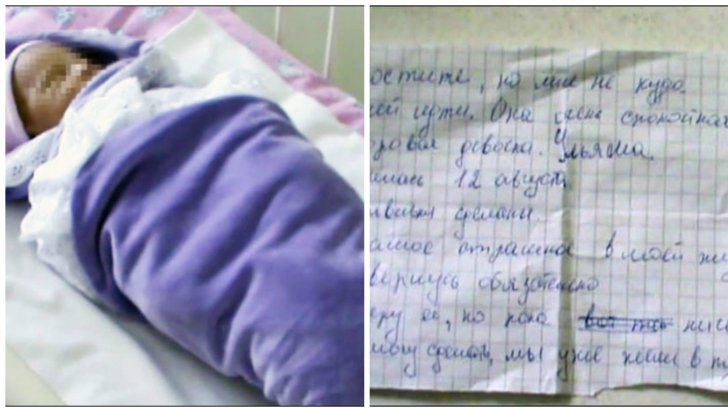 остите, но мне не куда
ей идти. Она очень спокойная
оровая девочка. Ульяша
илась 12 августа
ививки сделаны.
амое страшное в моей жи
вернусь обязательно
еру ее, но пока нич
могу сделать, мы уже жили в п